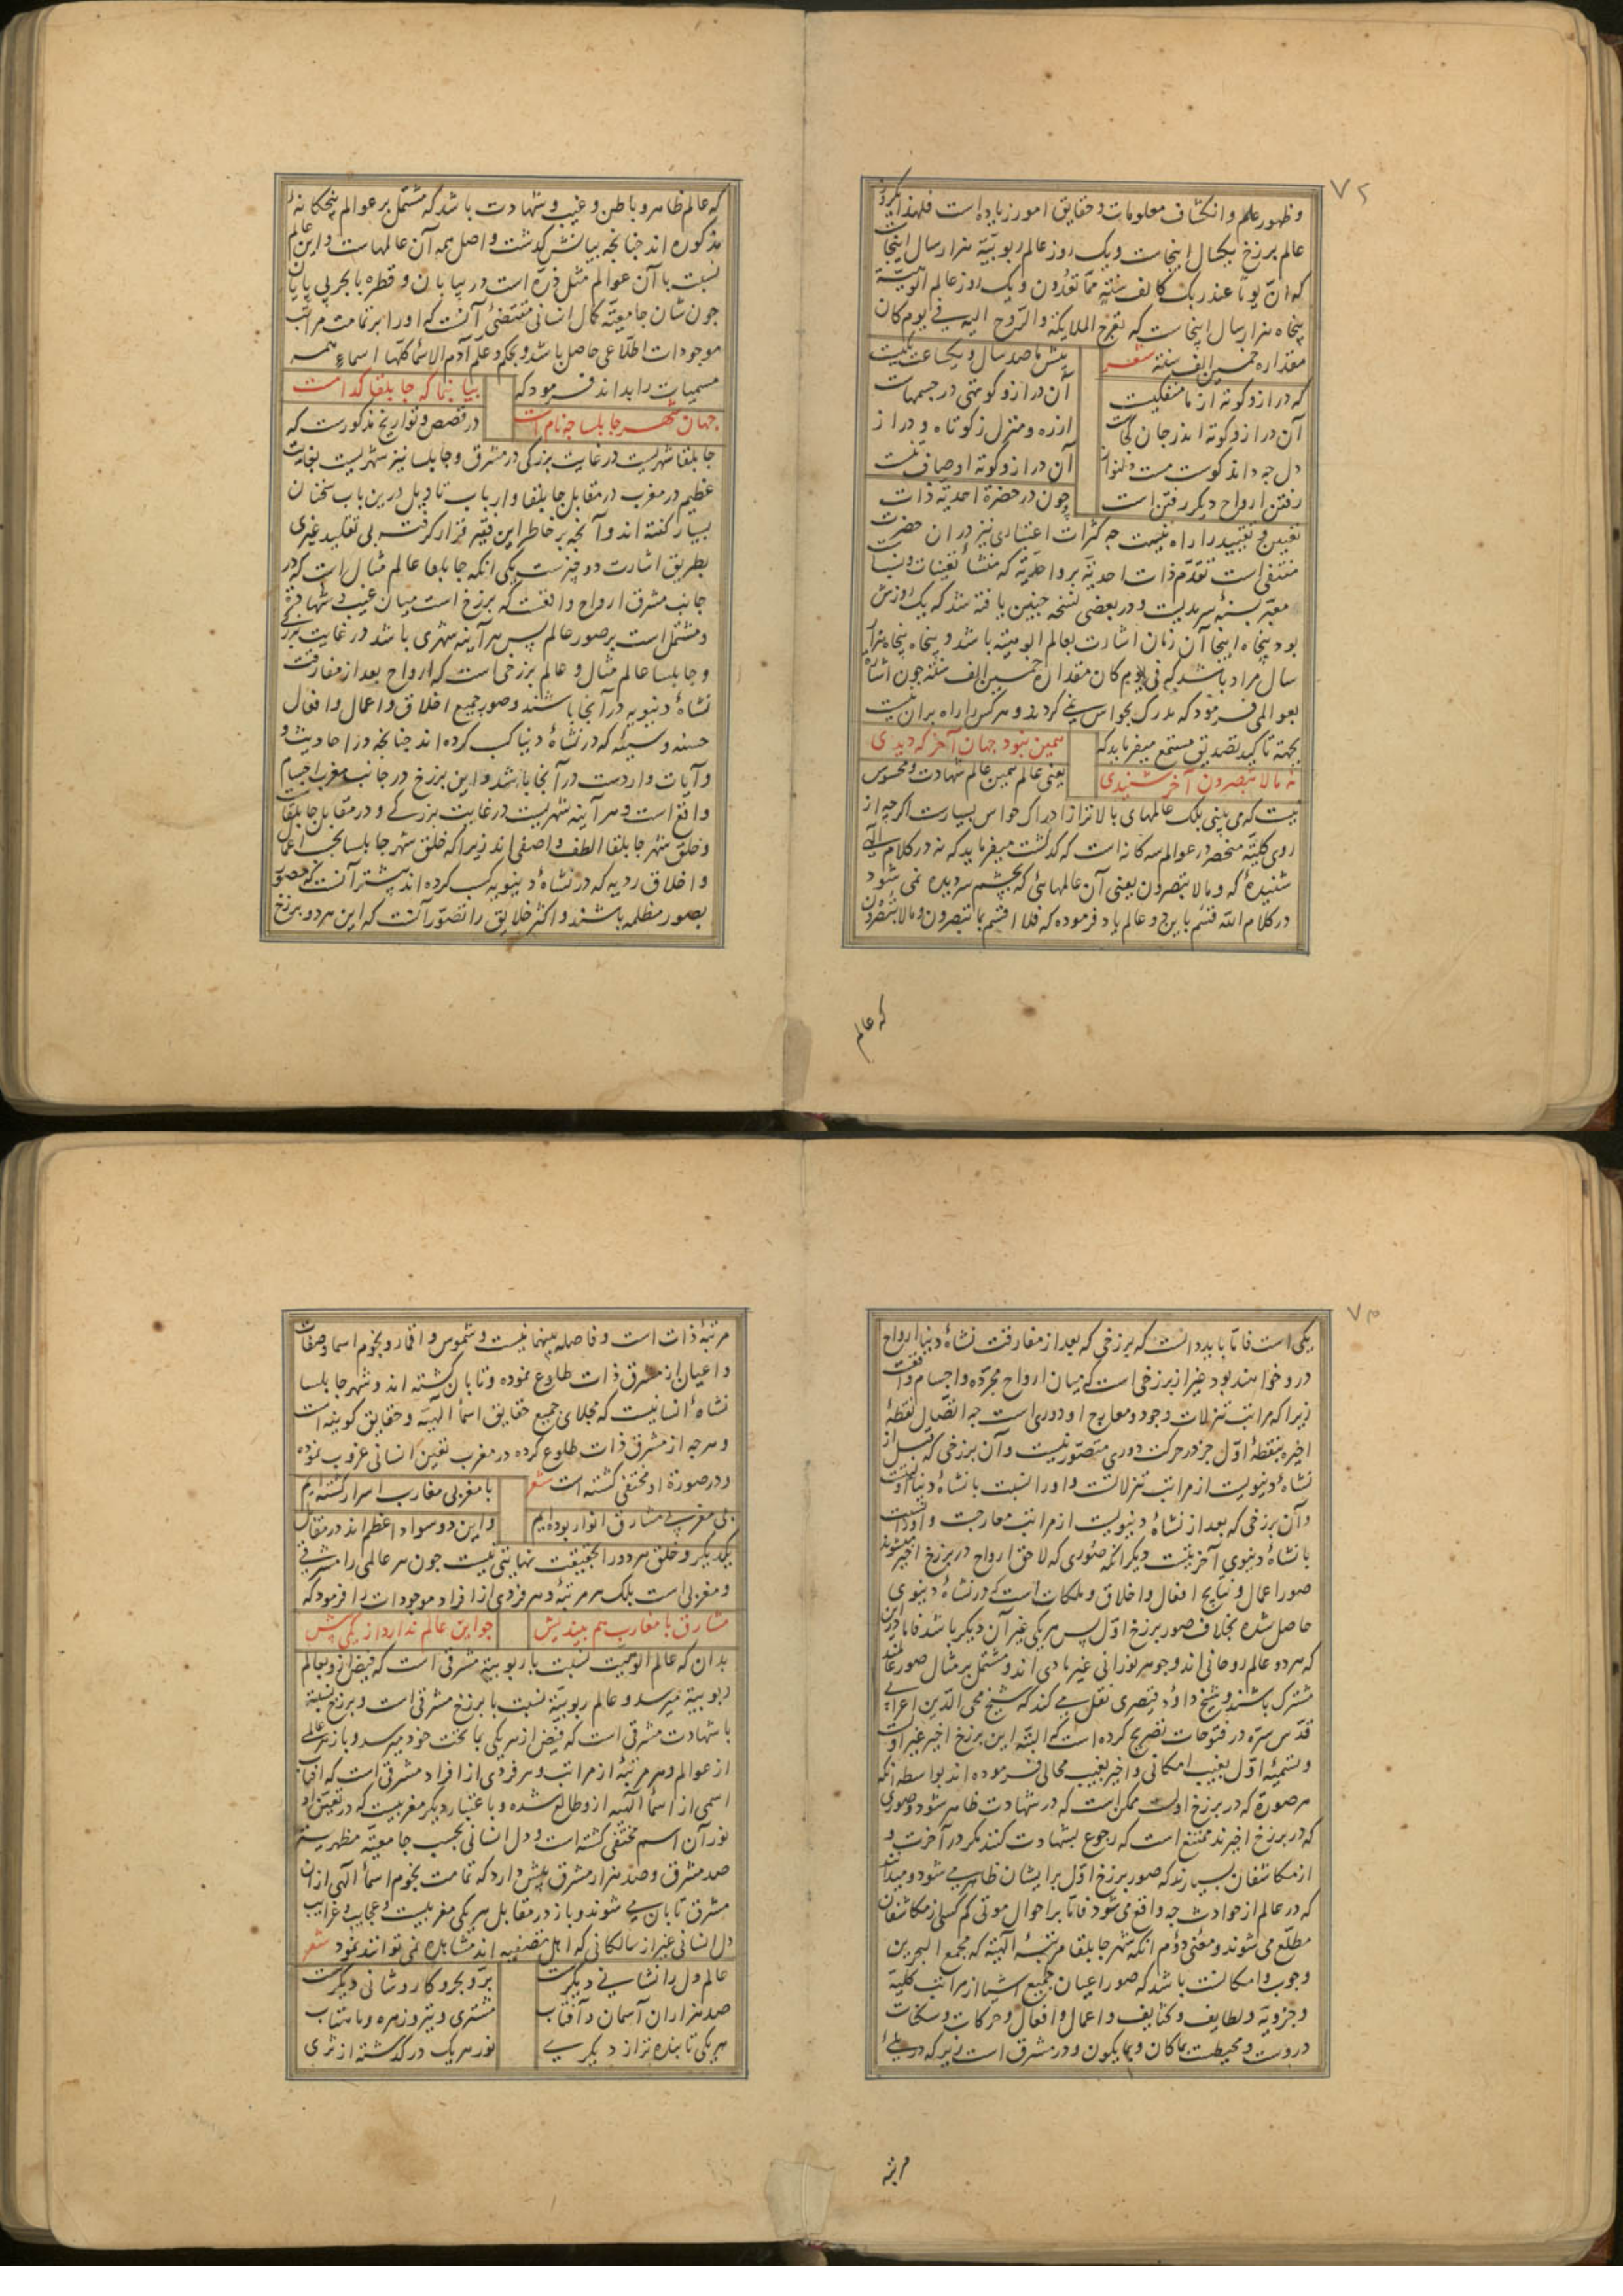 ۷۲
و ظهور علم و انکشاف معلومات و حقایق امور زیاده است فلهذا یکروز
عالم برزخ یکسال اینجاست و یک روز عالم ربوبیّة هزار سال اینجاست
که انّ یوما عند ربک کالف سنة ممّا تعدّون و یک روز عالم الوهیّة
پنجاه هزار سال اینجاست که تعرج الملایکة والروح الیه فی یوم کان
مقداره خمسین الف سنة شعر
پیش ما صد سال و یکساعت یکیست
که دراز و کوته از ما منفکیست
آن دراز و کوتهی در جسمهاست
آن دراز و کوته اندر جان کجاست
ازره و منزل ز کوتاه و دراز
دل چه داند کوست مست دلنواز
آن دراز و کوته اوصاف تنست
رفتن ارواح دیگر رفتن است
چون در حضرة احدیّة ذات
تعین و تقیید را راه نیست چه کثرات اعتباری نیز در ان حضرت
منتفی است تقدّم ذات احدیّة بر واحدیّة که منشأ تعینات و نسبت
معبّر بسنهٔ سرمدیست و در بعضی نسخه چنین یافته شد که یک روزش
بود پنجاه اینجا آن زمان اشارت بعالم الوهیّة باشد و پنجاه پنجاه هزار
سال مراد باشد که فی یوم کان مقداره خمسین الف سنة چون اشاره
بعوالمی فرمود که مدرک بحواس نمی کردند و هرکس را راه بران نیست
بجهة تاکید تصدیق مستمع میفرماید که
همین نبود جهان آخر که دیدی
نه مالا تبصرون آخر شنیدی
یعنی عالم همین عالم شهادت و محسوس
نیست که می بینی بلک عالمهای بالاتر از ادراک حواس بسیارست اگرچه از
روی کلیّة منحصر در عوالم سه کانه است که گذشت میفرماید که نه در کلام الهی
شنیدهٔ که و مالا تبصرون یعنی آن عالمهائی که بچشم سر دیده نمی شود
در کلام الله قسم باین دو عالم یاد فرموده که فلا اقسم بما تبصرون و مالا تبصرون
که عالم
که عالم ظاهر و باطن و غیب و شهادت باشد که مشتمل بر عوالم پنجکانهٔ
مذکوره اند چنانچه بیانش گذشت و اصل همه آن عالمهاست و این عالم
نسبت با آن عوالم مثل ذرّه است در بیابان و قطره با بحر بی پایان
چون شان جامعیّة کمال انسانی مقتضئ آنست که او را بر تمامت مراتب
موجودات اطّلاعی حاصل باشد و بحکم و علّم آدم الاسماء کلّها اسماء همه
مسمیات را بداند فرمود که
بیا بنما که جابلقا کدامست
جهان شهر جابلسا چه نامست
در قصص و تواریخ مذکورست که
جابلقا شهریست در غایت بزرگی در مشرق و جابلسا نیز شهریست بغایت
عظیم در مغرب در مقابل جابلقا و ارباب تاویل درین باب سخنان
بسیار گفته اند و آنچه بر خاطر این فقیر قرار گرفت بی تقلید غیری
بطریق اشارت دو چیزست یکی انکه جابلقا عالم مثال است که در
جانب مشرق ارواح واقعست که برزخ است میان غیب و شهادة
و مشتمل است بر صور عالم پس هر آینه شهری باشد در غایت بزرگی
و جابلسا عالم مثال و عالم برزخی است که ارواح بعد از مفارقت
نشاهٔ دنیویه در آنجا باشند و صور جمیع اخلاق و اعمال و افعال
حسنه و سیّئه که در نشاهٔ دنیا کسب کرده اند چنانچه در احادیث و
و آیات واردست در آنجا باشد و این برزخ در جانب مغرب اجسام
واقع است و هر آینه شهریست در غایت بزرگی و در مقابل جابلقاست
و خلق شهر جابلقا الطف و اصفی اند زیرا که خلق شهر جابلسا بحسب اعمال
و اخلاق ردیه که در نشاهٔ دنیویه کسب کرده اند بیشتر آنست که مصوّر
بصور مظلمه باشند و اکثر خلایق را تصوّر آنست که این هر دو برزخ
۷۳
یکی است فامّا باید دانست که برزخی که بعد از مفارقت نشاهٔ دنیا ارواح
درو خواهند بود غیر از برزخی است که میان ارواح مجرّده و اجسام واقعست
زیرا که مراتب تنزلات وجود و معارج او دوری است چه اتّصال نقطهٔ
اخیر بنقطهٔ اوّل جز در حرکت دوری متصوّر نیست و آن برزخی که قبل از
نشاهٔ دنیویست از مراتب تنزلاتست و او را نسبت با نشاهٔ دنیا اوّلیت
و آن برزخی که بعد از نشاهٔ دنیویست از مراتب معارجست و او را نسبت
با نشاهٔ دنیوی آخریتست دیگر انکه صوری که لاحق ارواح در برزخ اخیر میشوند
صور اعمال و نتایج افعال و اخلاق و ملکات است که در نشاهٔ دنیوی
حاصل شده بخلاف صور برزخ اوّل پس هر یکی غیر آن دیگر باشد فامّا درین
که هر دو عالم روحانی اند و جوهر نورانی غیر مادی اند و مشتمل بر مثال صور عالمند
مشترک باشند و شیخ داود قیصری نقل می کند که شیخ محی الدین اعرابی
قدّس سرّه در فتوحات تصریح کرده است که البتّه این برزخ اخیر غیر اوّلست
و تسمیهٔ اوّل بغیب امکانی و اخیر بغیب محالی فرموده اند بواسطه انکه
هر صورة که در برزخ اولست ممکن است که در شهادت ظاهر شود و صوری
که در برزخ اخیرند ممتنع است که رجوع بشهادت کنند مگر در آخرت و
از مکاشفان بسیارند که صور برزخ اوّل بر ایشان ظاهر می شود و میدانند
که در عالم از حوادث چه واقع می شود فامّا بر احوال موتی کم کسی از مکاشفان
مطلّع می شوند و معنی دوّم انکه شهر جابلقا مرتبهٔ الهیّة که مجمع البحرین
وجوب و امکانست باشد که صور اعیان جمیع اشیا از مراتب کلیّة
و جزویّة و لطایف و کثایف و اعمال و افعال و حرکات و سکنات
دروست و محیطست بماکان و بمایکون و در مشرق است زیرکه در پلئ
مرتبه
مرتبهٔ ذات است و فاصله بینهما نیست و شموس و اقمار و نجوم اسما و صفات
و اعیان از مشرق ذات طلوع نموده و تابان گشته اند و شهر جابلسا
نشاهٔ انسانیست که مجلای جمیع حقایق اسماء الهیّة و حقایق کونیه است
و هر چه از مشرق ذات طلوع کرده در مغرب تعین انسانی غروب نموده
و در صورة او مختفی گشته است شعر
با مغربی مغارب اسرار گشته ایم
بی مغربی مشارق انوار بوده ایم
و این دو سواد اعظم اند در مقابل
یکدیگر و خلق هر دو را بحقیقت نهایتی نیست چون هر عالمی را مشرقی
و مغربی است بلک هر مرتبهٔ و هر فردی از افراد موجودات را فرمود که
مشارق با مغارب هم بیندیش
چو این عالم ندارد از یکی بیش
بدان که عالم الوهیت نسبت با ربوبیّة مشرقی است که فیض از و بعالم
ربوبیّة میرسد و عالم ربوبیّة نسبت با برزخ مشرقی است و برزخ نسبة
با شهادت مشرقی است که فیض از هر یکی بما تحت خود میرسد و باز هر عالمی
از عوالم و هر مرتبهٔ از مراتب و هر فردی از افراد مشرقی است که افتاب
اسمی از اسماء الهیّه ازو طالع شده و باعتبار دیگر مغربیست که در تعین او
نور آن اسم مختفی گشته است و دل انسانی بحسب جامعیّة مظهریت
صد مشرق و صد هزار مشرق بیش دارد که تمامت نجوم اسماء الهی ازان
مشرق تابان می شوند و باز در مقابل هر یکی مغربیست و عجایب و غرایب
دل انسانی غیر از سالکانی که اهل تصفیه اند مشاهده نمی توانند نمود شعر
عالم دل را نشانی دیگرست
بر و بحر و کار و شانی دیگرست
صد هزاران آسمان و آفتاب
مشتری و تیر و زهره و ماهتاب
هر یکی تابنده تر از دیگری
نور هر یک در گذشته از ثری